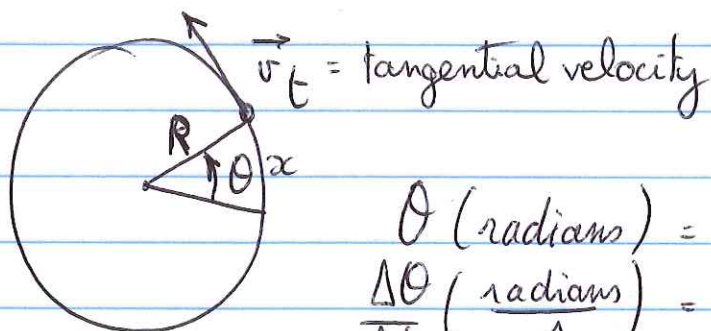 v⃗t = tangential velocity
R
θ x
θ (radians) =
Δθ (radians) =